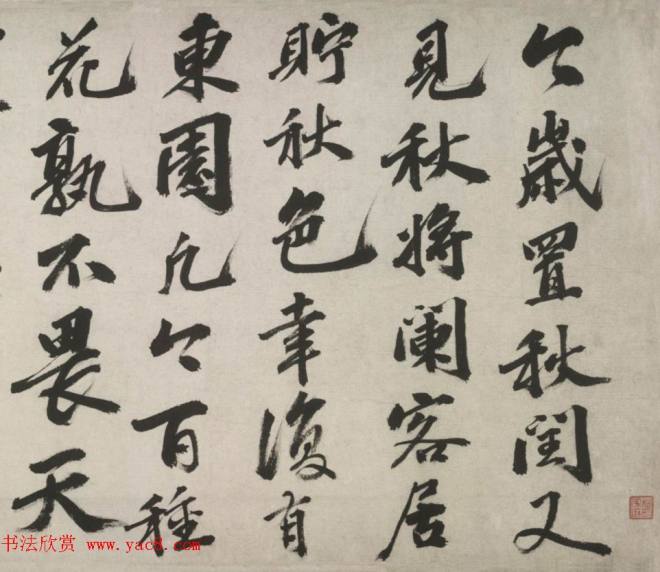 今歲置秋閏又
見秋將闌客居
貯秋色幸復有
東園凡今百種
花孰不畏天
书法欣赏 www.yac8.com